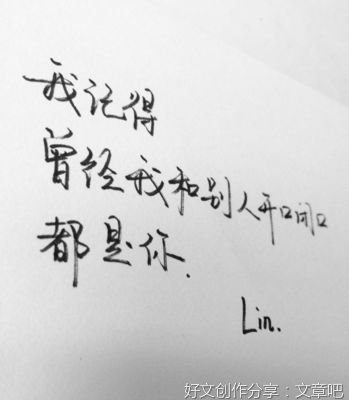 我记得
曾经我和别人开口闭口
都是你.
Lin.
好文创作分享：文章吧